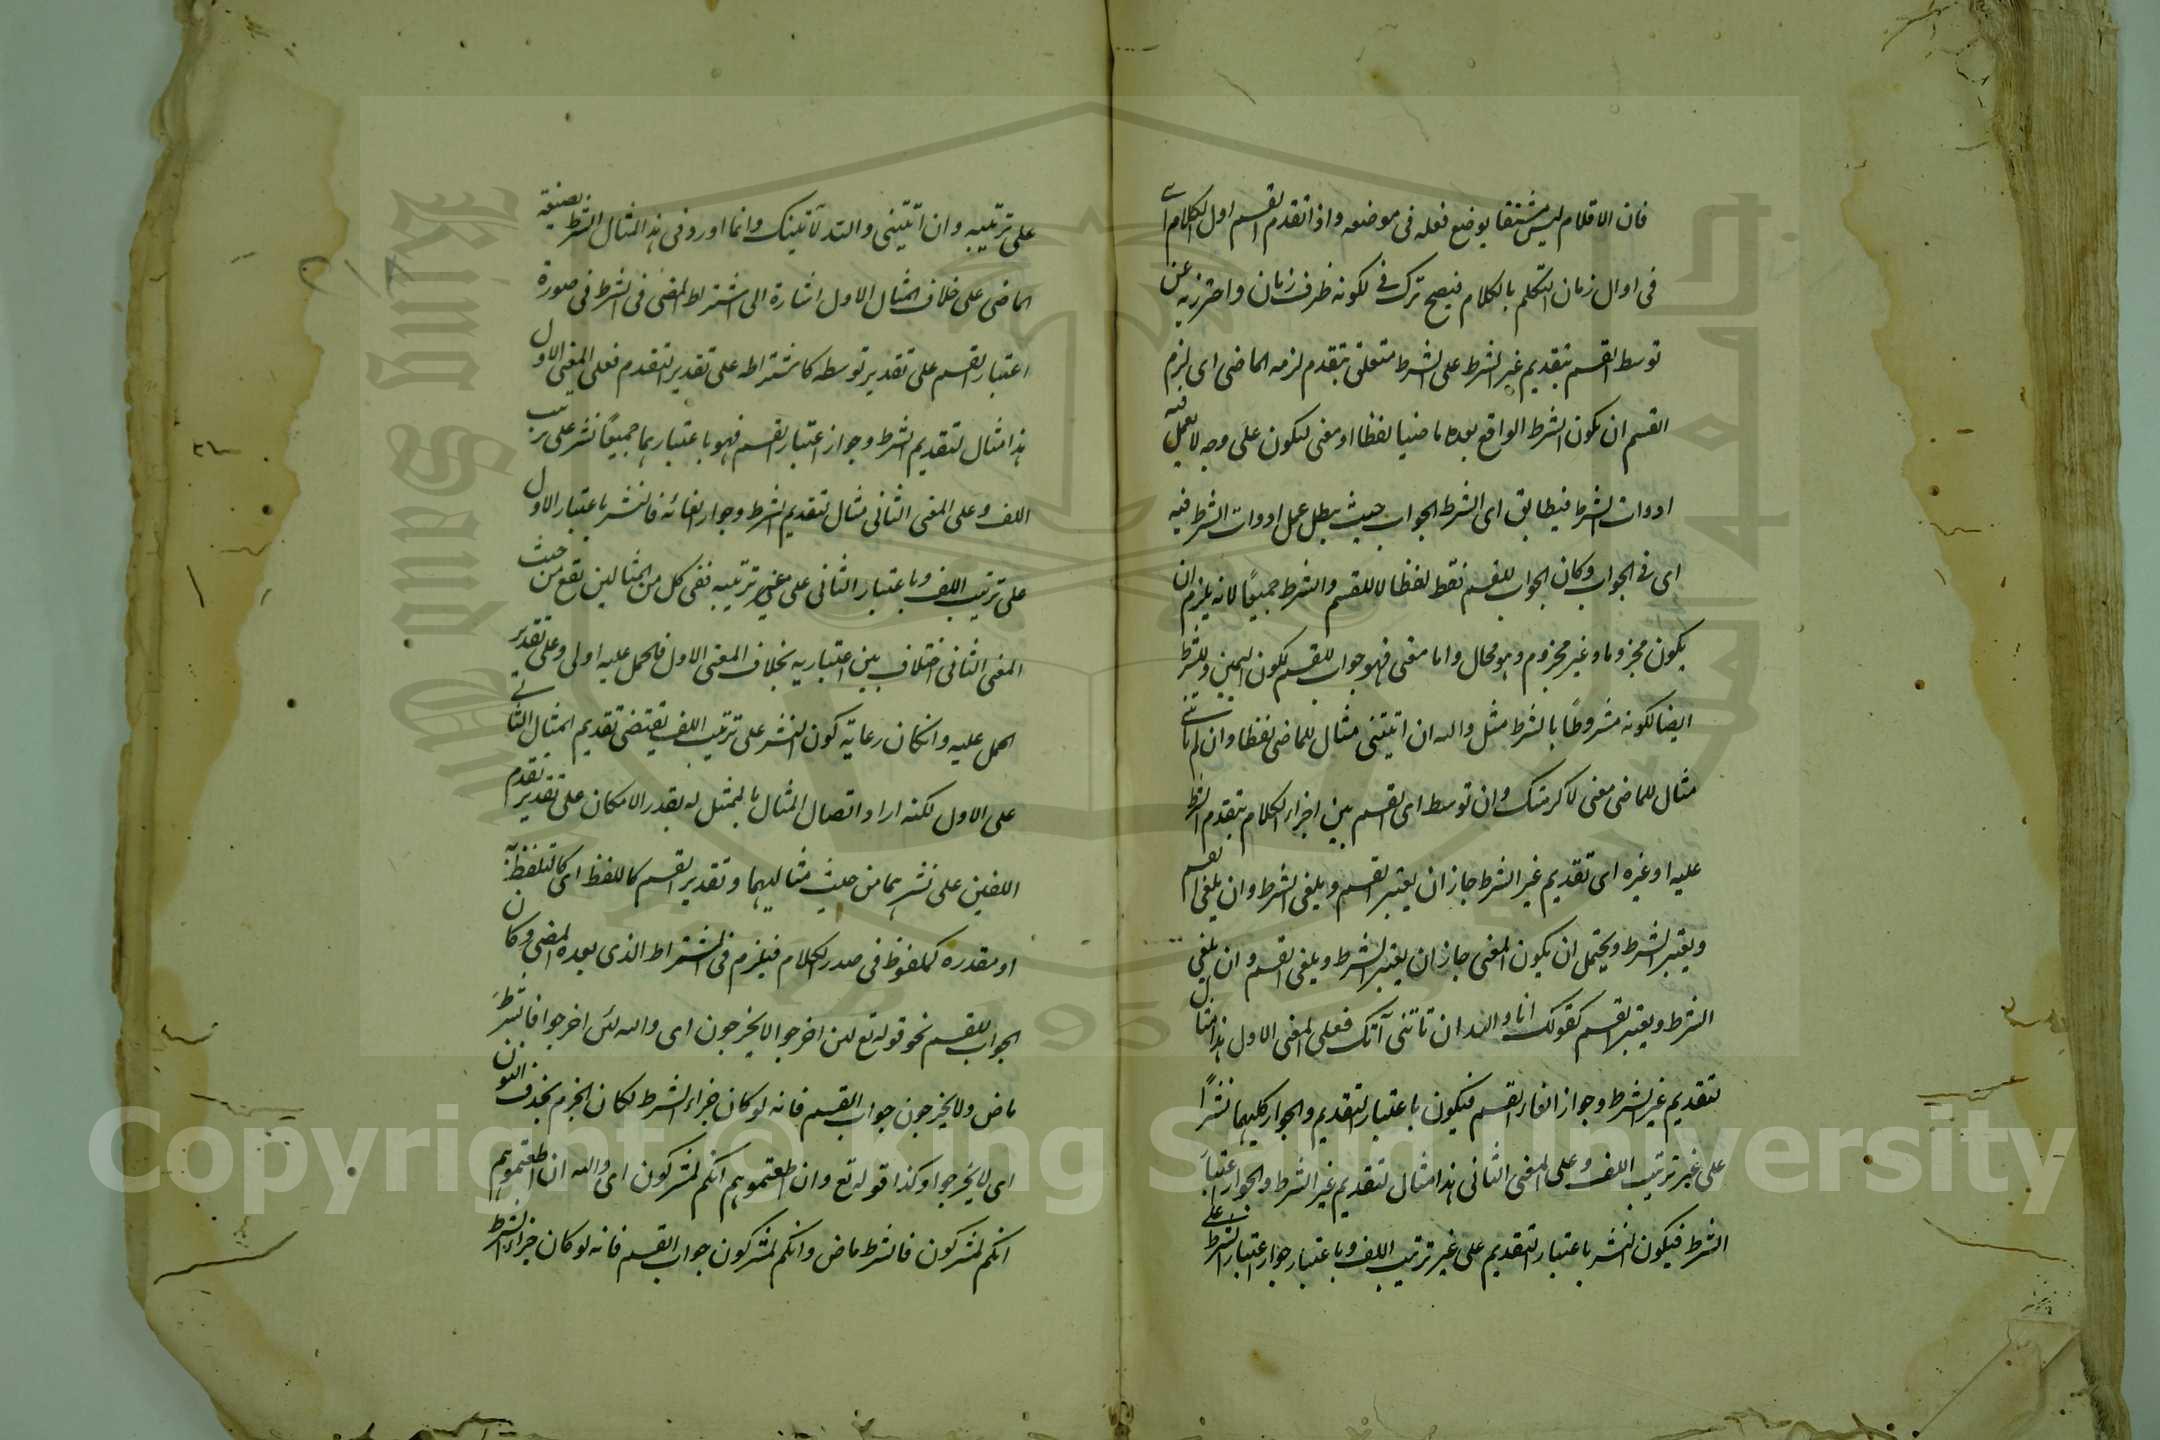 فان الاقلام ليس مشتقا يوضع فعله فى موضعه واذا تقدم القسم اول الكلام اى
فى اوال زمان التكلم بالكلام فيصح ترك فى لكونه ظرف زمان واحترز به عن
توسط القسم بتقديم غير الشرط على الشرط متعلق بتقدم لزمه الماضى اى لزم
القسم ان يكون الشرط الواقع بعده ماضيا لفظا او معنى ليكون على وجه لا يعمل فيه
ادوات الشرط فيطابق اى الشرط الجواب حيث يبطل عمل ادوات الشرط فيه
اى فى الجواب وكان الجواب للقسم فقط لفظا لا للقسم والشرط جميعًا لانه يلزم ان
يكون مجزوما وغير مجزوم وهو محال واما معنى فهو جواب للقسم لكون اليمين وللشرط
ايضا لكونه مشروطًا بالشرط مثل والله ان اتيتنى مثال للماضى لفظا وان لم تاتنى
مثال للماضى معنى لاكرمتك وان توسط اى القسم بين اجزاء الكلام بتقدم الشرط
عليه او غيره اى تقديم غير الشرط جاز ان يعتبر القسم ويلغى الشرط وان يلغى القسم
ويعتبر الشرط ويحتمل ان يكون المعنى جاز ان يعتبر الشرط ويلغى القسم وان يلغى
الشرط ويعتبر القسم كقولك انا والله ان تاتنى آتك فعلى المعنى الاول هذا مثال
لتقديم غير الشرط وجواز الغاء القسم فيكون باعتبار التقديم والجواز كليهما نشرًا
على غير ترتيب اللف وعلى المعنى الثانى هذا مثال لتقديم غير الشرط والجواز اعتبار
الشرط فيكون النشر باعتبار التقديم على غير ترتيب اللف وباعتبار جواز اعتبار الشرط على
على ترتيبه وان اتيتنى والله لآتينك وانما اورد فى هذا المثال الشرط بصيغة
الماضى على خلاف المثال الاول اشارة الى اشتراط المضى فى الشرط فى صورة
اعتبار القسم على تقدير توسطه كاشتراطه على تقدير التقدم فعلى المعنى الاول
هذا مثال لتقديم الشرط وجواز اعتبار القسم فهو باعتبارهما جميعًا نشر على ترتيب
اللف وعلى المعنى الثانى مثال لتقديم الشرط وجواز الغائه فالنشر باعتبار الاول
على ترتيب اللف وباعتبار الثانى على غير ترتيبه ففى كل من المثالين يقع من حيث
المعنى الثانى اختلاف بين اعتباريه بخلاف المعنى الاول فالحمل عليه اولى وعلى تقدير
الحمل عليه وانكان رعاية كون النشر على ترتيب اللف يقتضى تقديم المثال الثانى
على الاول لكنه اراد اتصال المثال بالممثل له بقدر الامكان على تقدير تقدم
اللفين على نشرهما من حيث مثاليهما وتقدير القسم كاللفظ اى كالتلفظ به
او مقدره كملفوظ فى صدر الكلام فيلزم فى الشتراط الذى بعده المضى وكان
الجواب للقسم نحو قوله تع لئن اخرجوا لا يخرجون اى والله لئن اخرجوا فالشرط
ماض ولا يخرجون جواب القسم فانه لو كان جزاء الشرط لكان الجزم بحذف النون
اى لا يخرجوا وكذا قوله تع وان اطعتموهم انكم لمشركون اى والله ان اطعتموهم
انكم لمشركون فالشرط ماض وانكم لمشركون جواب القسم فانه لو كان جزاء الشرط
Copyright © King Saud University